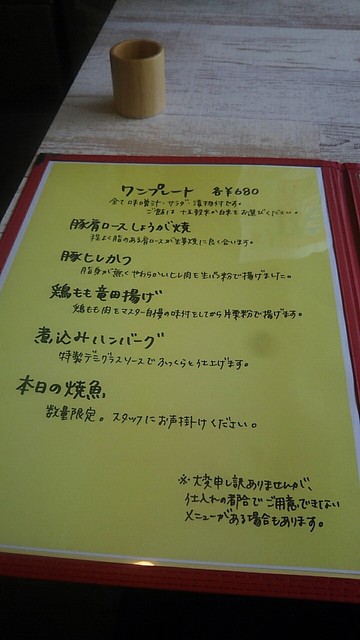 ワンプレート 各¥680
全て味噌汁・サラダ・漬物付です。
ご飯は十五穀米か白米をお選びください。
豚肩ロースしょうが焼
程よく脂のある肩ロースが生姜焼に良く合います。
豚ヒレかつ
脂身が無くやわらかいヒレ肉を生パン粉で揚げました。
鶏もも竜田揚げ
鶏もも肉をマスター自慢の味付をしてから片栗粉で揚げます。
煮込みハンバーグ
特製デミグラスソースでふっくらと仕上げます。
本日の焼魚
数量限定。スタッフにお声掛けください。
※大変申し訳ありませんが、
仕入れの都合でご用意できない
メニューがある場合もあります。